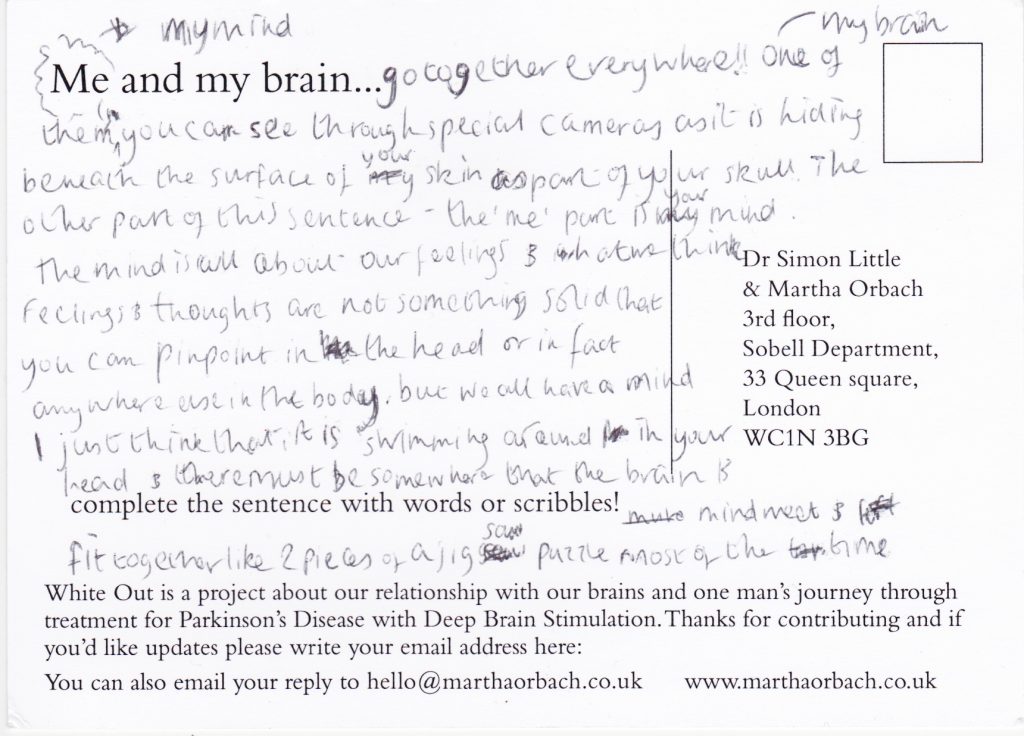 my mind
my brain
Me and my brain... go together everywhere!! One of
them, you can see through special cameras as it is hiding
beneath the surface of your skin as part of your skull. The
other part of this sentence - the 'me' part is your mind.
The mind is all about our feelings & what we think
Dr Simon Little
& Martha Orbach
3rd floor,
Sobell Department,
33 Queen square,
London
WC1N 3BG
Feelings & thoughts are not something solid that
you can pinpoint in the head or in fact
anywhere else in the body. but we all have a mind
I just think that it is swimming around in your
head & there must be somewhere that the brain &
complete the sentence with words or scribbles!
mind meet &
fit together like 2 pieces of a jigsaw puzzle most of the time
White Out is a project about our relationship with our brains and one man's journey through
treatment for Parkinson's Disease with Deep Brain Stimulation. Thanks for contributing and if
you'd like updates please write your email address here:
You can also email your reply to hello@marthaorbach.co.uk www.marthaorbach.co.uk